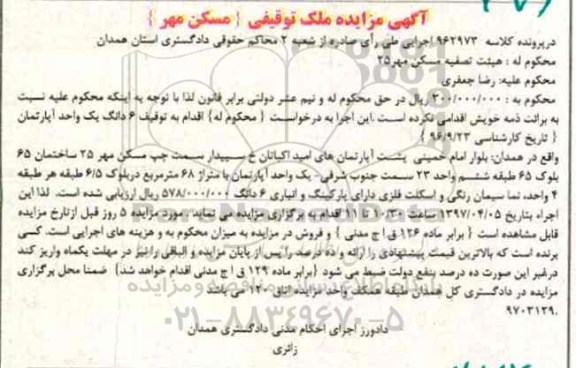 آگهی مزایده ملک توقیفی { مسکن مهر }
درپرونده کلاسه ۹۶۲۹۷۳ اجرایی طی رأی صادره از شعبه ۲ محاکم حقوقی دادگستری استان همدان
محکوم له : هیئت تصفیه مسکن مهر۲۵
محکوم علیه: رضا جعفری
محکوم به : ۳۰۰/۰۰۰/۰۰۰ ریال در حق محکوم له و نیم عشر دولتی برابر قانون لذا با توجه به اینکه محکوم علیه نسبت
به برائت ذمه خویش اقدامی نکرده است .این اجرا به درخواست { محکوم له} اقدام به توقیف ۶ دانگ یک واحد آپارتمان
{ تاریخ کارشناسی ۹۶/۹/۲۳ }
واقع در همدان: بلوار امام خمینی پشت آپارتمان های امید اکباتان خ سپیدار سمت چپ مسکن مهر ۲۵ ساختمان ۶۵
بلوک ۶۵ طبقه ششم واحد ۲۳ سمت جنوب شرقی- یک واحد آپارتمان با متراژ ۶۸ مترمربع دربلوک ۶/۵ طبقه هر طبقه
۴ واحد، نما سیمان رنگی و اسکلت فلزی دارای پارکینگ و انباری ۶ دانگ ۵۷۸/۰۰۰/۰۰۰ ریال ارزیابی شده است. لذا این
اجراء بتاریخ ۱۳۹۷/۰۴/۰۵ ساعت ۱۰/۳۰ تا ۱۱ اقدام به برگزاری مزایده می نماید . مورد مزایده ۵ روز قبل ازتارخ مزایده
قابل مشاهده است { برابر ماده ۱۲۶ ق ا ج مدنی } و فروش در مزایده به میزان محکوم به و هزینه های اجرایی است. کسی
برنده است که بالاترین قیمت پیشنهادی را ارائه و ده درصد را پس از پایان مزایده و الباقی را نیز در مهلت یکماه واریز کند
درغیر این صورت ده درصد بنفع دولت ضبط می شود {برابر ماده ۱۲۹ ق ا ج مدنی اقدام خواهد شد} ضمنا محل برگزاری
مزایده در دادگستری کل همدان طبقه همکف واحد مزایده اتاق ۱۲۰ می باشد
۹۷۰۳۱۲۹.
۰۲۱-۸۸۳۴۹۶۷۰-۵
دادورز اجرای احکام مدنی دادگستری همدان
زائری